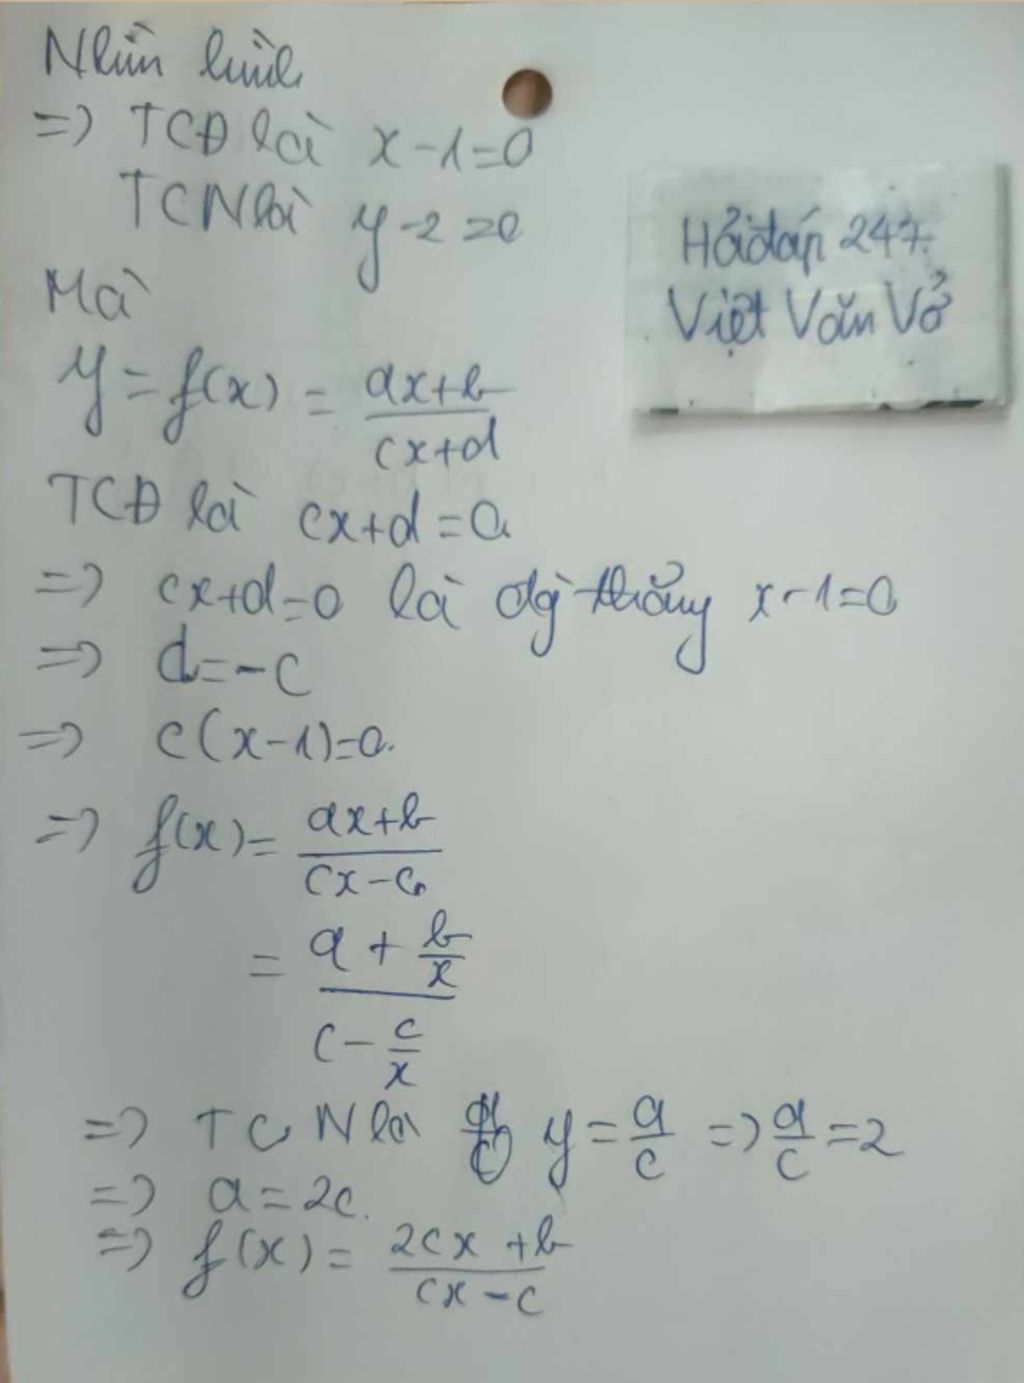 Nhìn hình
=> TCĐ là x-1=0
TCN là y-2=0
Hỏi đáp 247.
Việt Văn Vở
Mà
y=f(x) = \frac{ax+b}{cx+d}
TCĐ là cx+d=0
=> cx+d=0 là đg thẳng x-1=0
=> d=-c
=> c(x-1)=0.
=> f(x)= \frac{ax+b}{cx-c}
= \frac{a + \frac{b}{x}}{c - \frac{c}{x}}
=> TCN là y = \frac{a}{c} => \frac{a}{c} = 2
=> a = 2c.
=> f(x) = \frac{2cx + b}{cx - c}